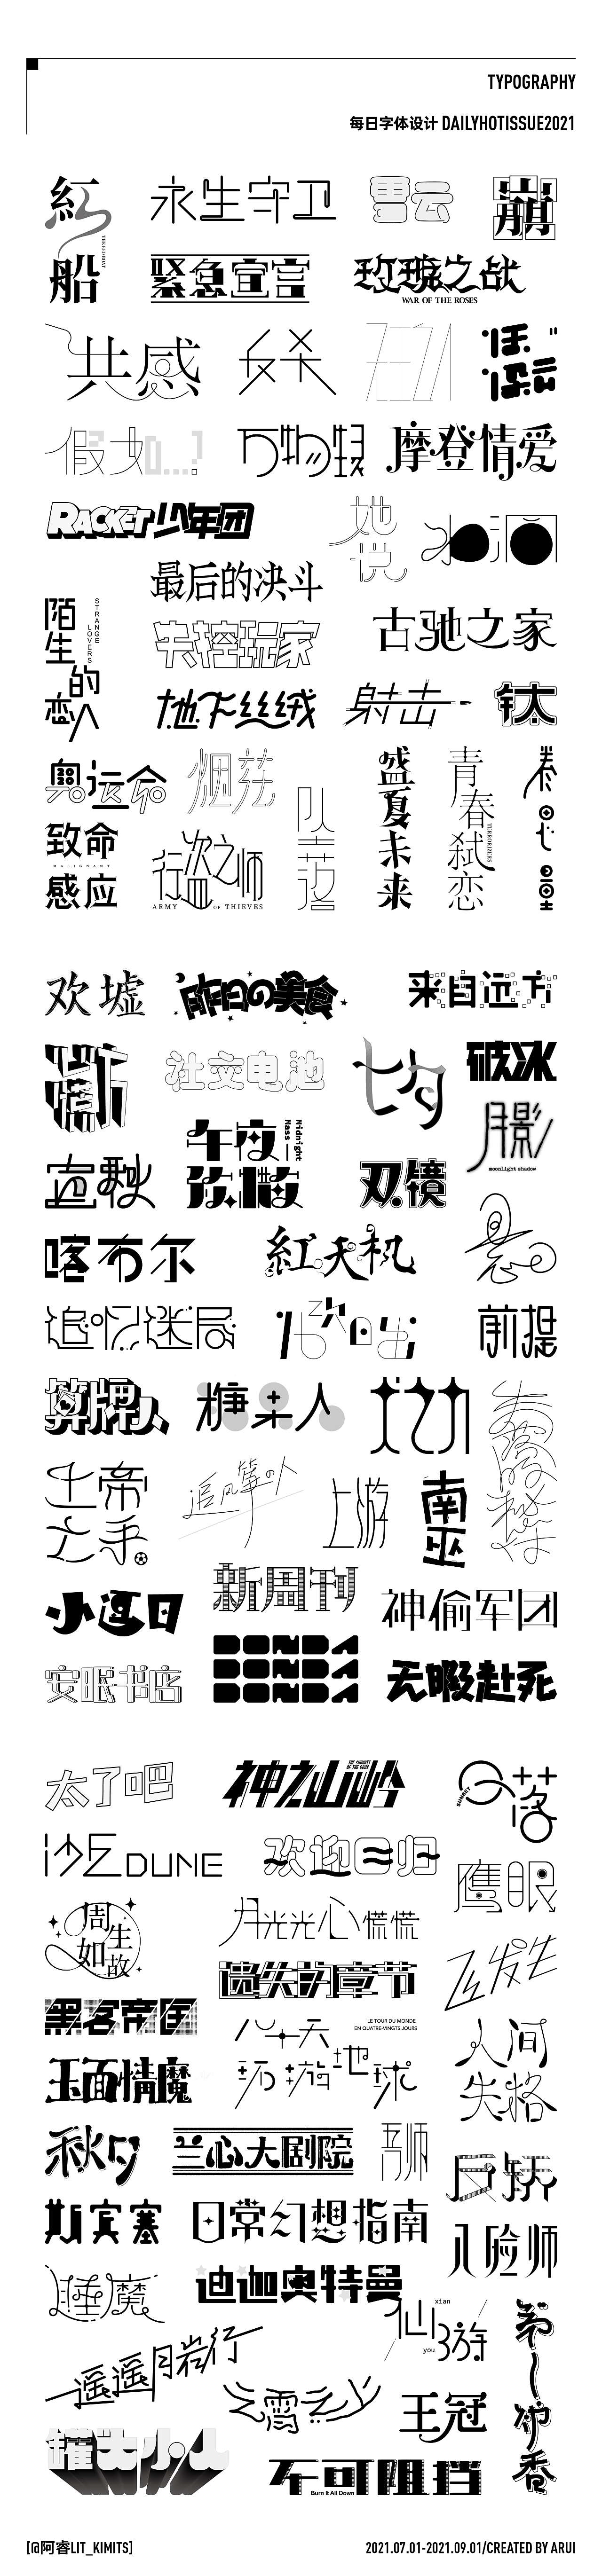 TYPOGRAPHY
每日字体设计 DAILYHOTISSUE2021
紅船
THE RED BOAT
永生守卫
雪云
崩
紧急宣言
玫瑰之战
WAR OF THE ROSES
共感
反杀
假如...?
万物弦
摩登情爱
RACKET少年团
她说
冰洞
最后的决斗
陌生的恋人
STRANGE LOVERS
失控玩家
古驰之家
地下丝绒
射击
钛
奥运会
烟兹
致命感应
MALIGNANT
行盗之师
ARMY OF THIEVES
队三落
盛夏未来
青春弑恋
TERRORIZERS
欢墟
昨日の美食
来自远方
社交电池
七夕
破冰
月影
moonlight shadow
立秋
午夜弥撒
Midnight Mass
双镜
喀布尔
紅天机
追忆迷局
16次日出
前提
算牌人
糖果人
上帝之手
追风筝の人
上游
南巫
新周刊
小逗日
神偷军团
安眠书店
DONDA
DONDA
DONDA
无暇赴死
太了吧
神之山岭
THE SUMMIT OF THE GODS
日落
SUNSET
沙丘DUNE
欢迎回归
鹰眼
周生如故
月光光心慌慌
遗失的章节
飞发生
黑客帝国
八十天环游地球
LE TOUR DU MONDE
EN QUATRE-VINGTS JOURS
人间失格
玉面情魔
秋夕
兰心大剧院
吾师
反骄
斯宾塞
日常幻想指南
入殓师
睡魔
迪迦奥特曼
仙游
xian
you
第一炉香
遥遥月岩行
云霄之上
王冠
罐头小人
不可阻挡
Burn It All Down
[@阿睿LIT_KIMITS]
2021.07.01-2021.09.01/CREATED BY ARUI